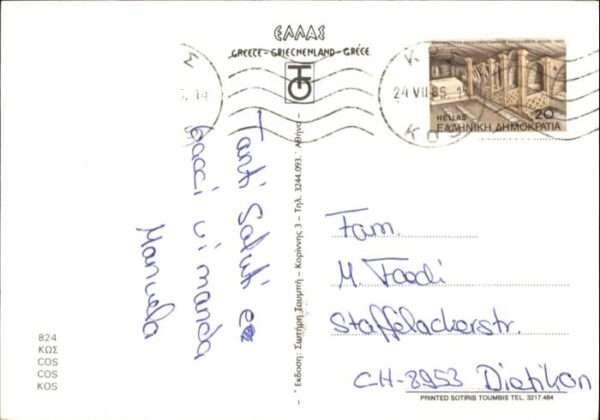 ΕΛΛΑΣ
GREECE - GRIECHENLAND - GRÈCE
24 VII 85
ΚΩΣ
HELLAS 20
ΕΛΛΗΝΙΚΗ ΔΗΜΟΚΡΑΤΙΑ
Tanti Saluti e
bacci vi manda
Manuela
Έκδοση: Σωτήρη Τουμπή - Κορίννης 3 - Τηλ. 3244.093. Αθήνα
Fam.
M. Foodi
Staffelackerstr.
CH-8953 Dietikon
824
ΚΩΣ
COS
COS
KOS
PRINTED SOTIRIS TOUMBIS TEL. 3217.464